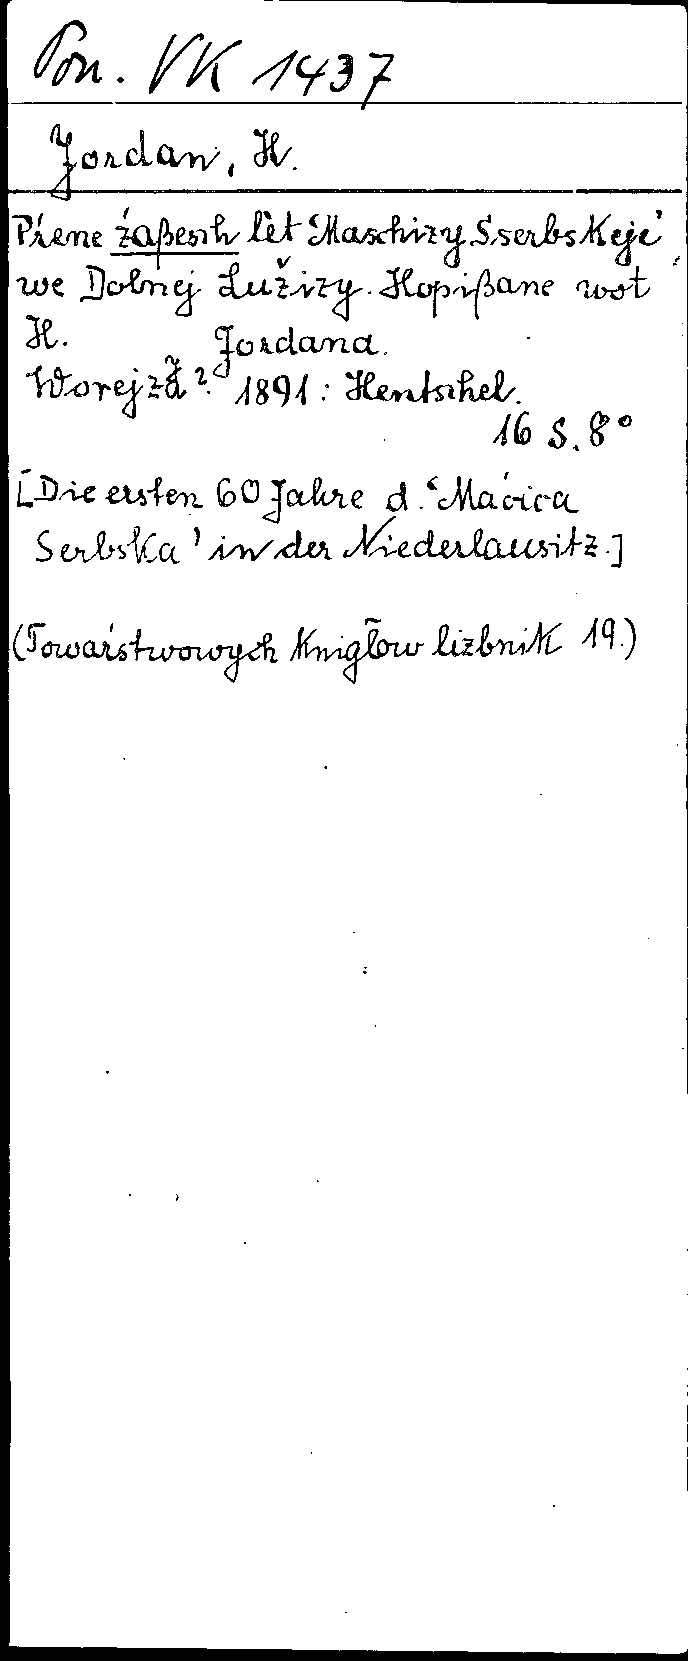 Pon. VK 1437
Jordan, H.
Pŕene źaßesch lět 'Maschizy Sserbskeje'
we Dolnej Łužizy. Hopißane wot
H. Jordana.
Worejzÿ? 1891: Hentschel.
16 S. 8°
[Die ersten 60 Jahre d. 'Maćica
Serbska' in der Niederlausitz.]
(Towaŕstwowych knigłow lizbnik 19.)